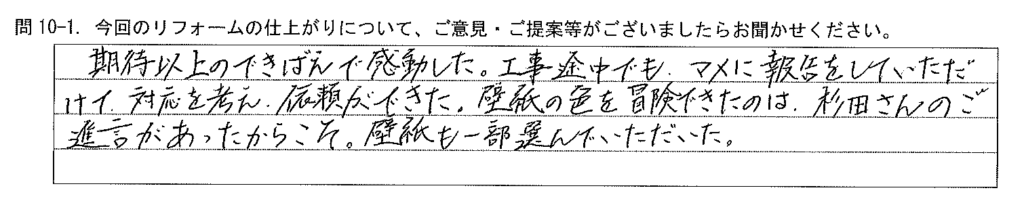 問10-1. 今回のリフォームの仕上がりについて、ご意見・ご提案等がございましたらお聞かせください。
期待以上のできばえで感動した。工事途中でも、マメに報告をしていただ
けて、対応を考え、依頼ができた。壁紙の色を冒険できたのは、杉田さんのご
進言があったからこそ。壁紙も一部選んでいただいた。